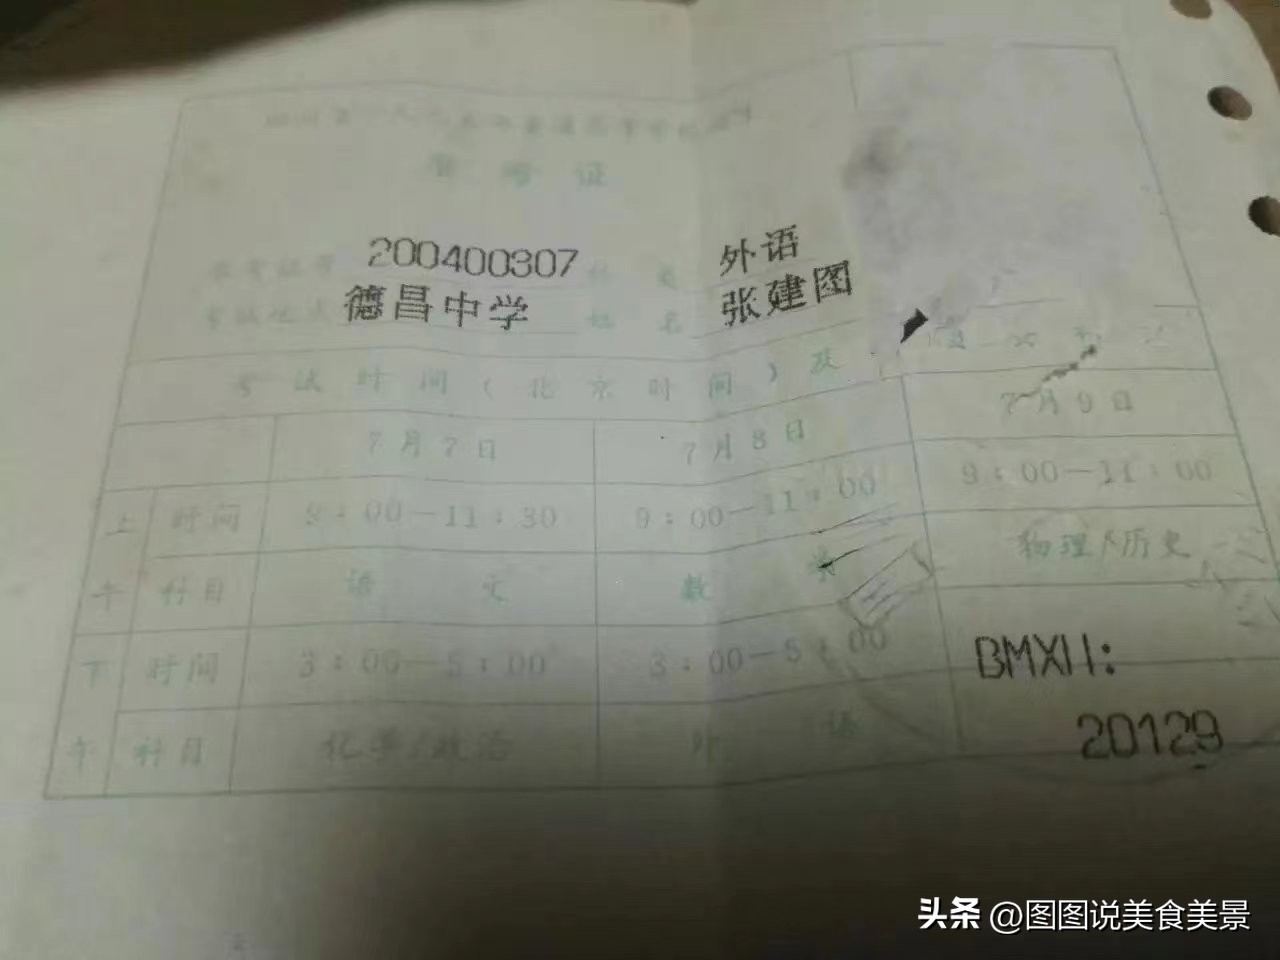 准考证
准考证号 200400307 科类 外语
考试地点 德昌中学 姓名 张建图
考试时间(北京时间)及
7月7日 7月8日 7月9日
上午 时间 9:00—11:30 9:00—11:00 9:00—11:00
科目 语文 数学 物理/历史
下午 时间 3:00—5:00 3:00—5:00
科目 化学/政治 外语
BMXH:
20129
头条 @图图说美食美景